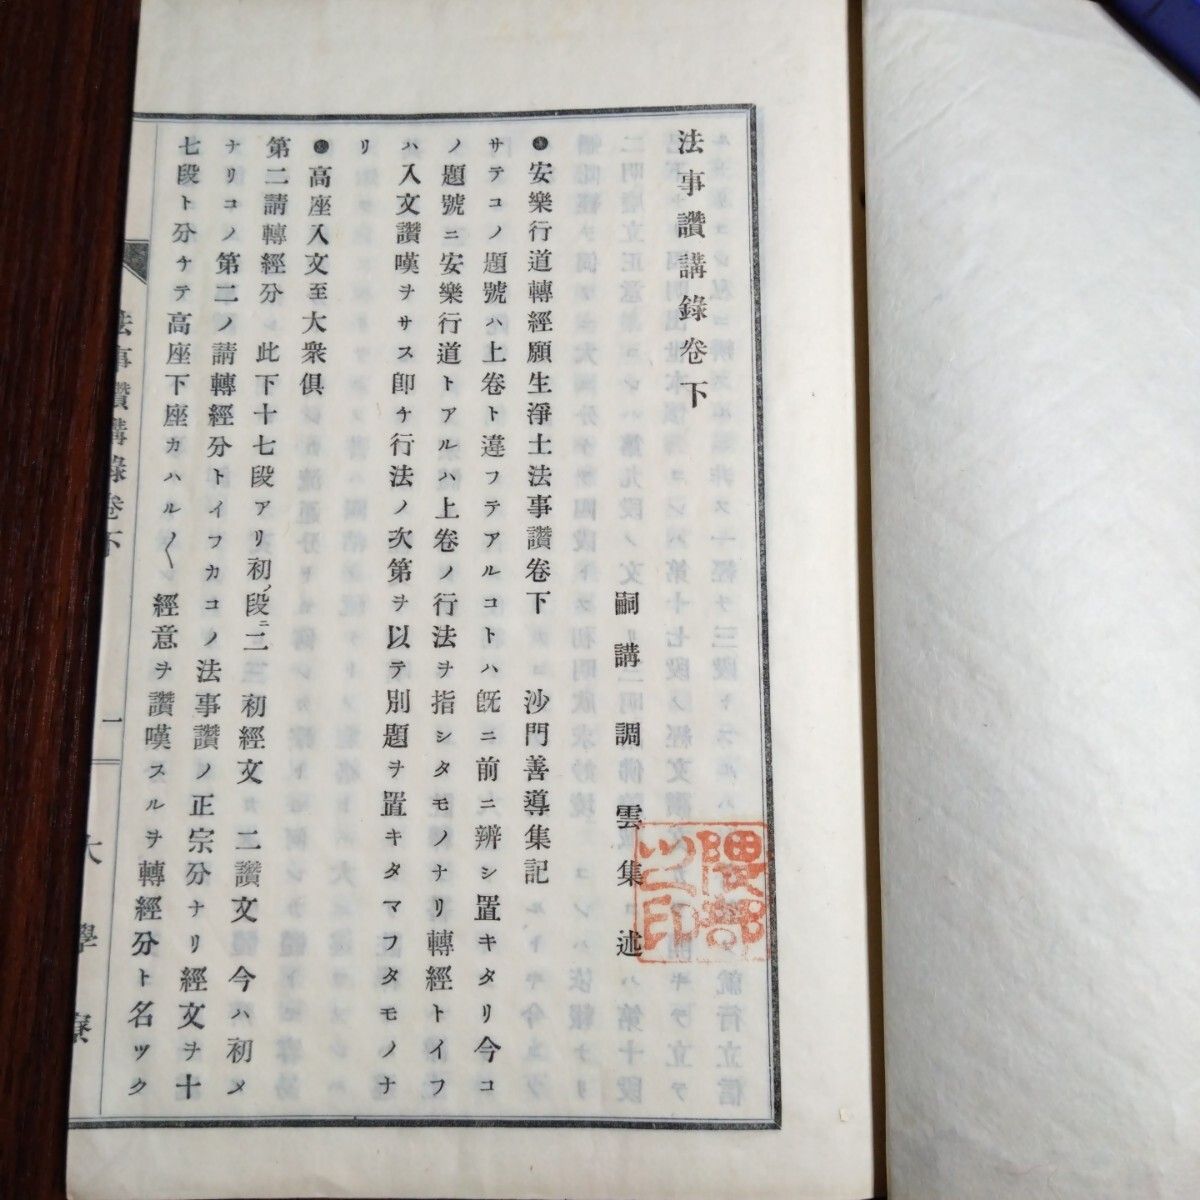 法事讚講錄卷下
嗣講調雲集述
●安樂行道轉經願生淨土法事讚卷下　沙門善導集記
サテコノ題號ハ上卷ト違フテアルコトハ既ニ前ニ辨シ置キタリ今コ
ノ題號ニ安樂行道トアルハ上卷ノ行法ヲ指シタモノナリ轉經トイフ
ハ入文讚嘆ヲサス卽チ行法ノ次第ヲ以テ別題ヲ置キタマフタモノナ
リ
●高座入文至大衆俱
第二請轉經分　此下十七段アリ初ノ段ニ二　初經文　二讚文　今ハ初メ
ナリコノ第二ノ請轉經分トイフカコノ法事讚ノ正宗分ナリ經文ヲ十
七段ト分ケテ高座下座カハル〱經意ヲ讚嘆スルヲ轉經分ト名ツク
法事讚講錄卷下
一
大學寮
隈部之印